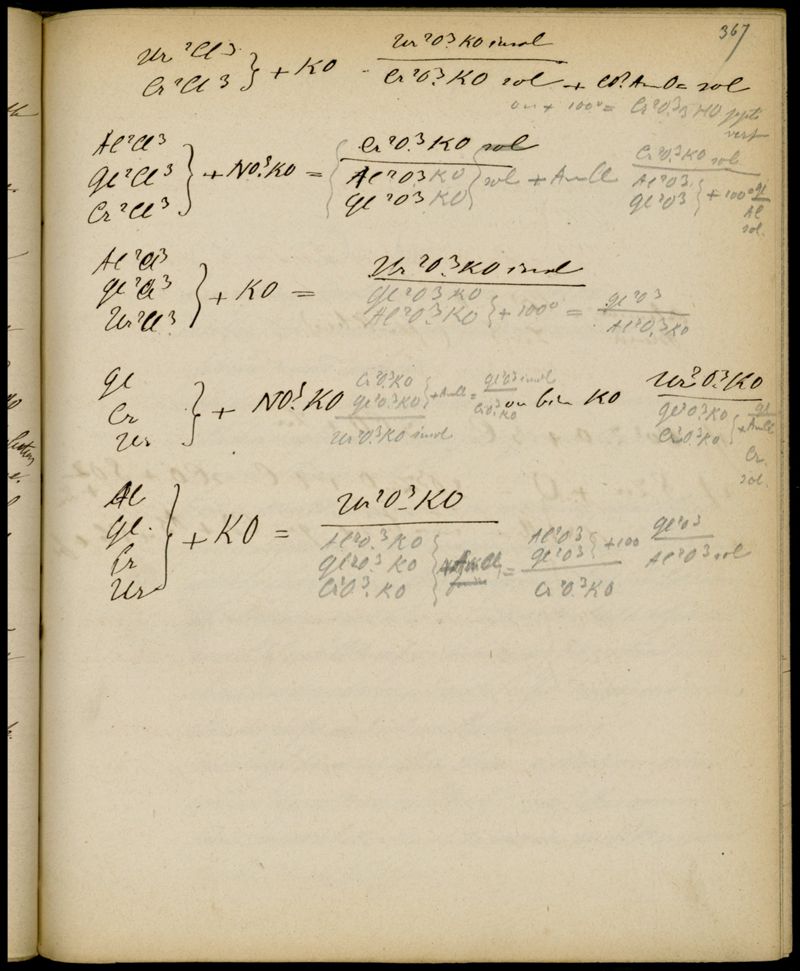 367
Ur²Cl³
Cr²Cl³ } + KO Ur²O³KO insol
Cr²O³.KO sol + CO²AmO = sol
ou + 100° = Cr²O³ HO ppté
vert
Al²Cl³
Gl²Cl³
Cr²Cl³ } + NO⁵.KO = { Cr²O³KO sol
Al²O³KO
Gl²O³KO } sol + AmCl Cr²O³KO sol
Al²O³
Gl²O³ } + 100° = Gl
Al
sol.
Al²Cl³
Gl²Cl³
Ur²Cl³ } + KO = Ur²O³KO insol
Gl²O³KO
Al²O³.KO } + 100° = Gl²O³
Al²O³.KO
Gl
Cr
Ur } + NO⁵.KO Cr²O³KO
Gl²O³KO } + AmCl = Gl²O³ insol
Cr²O³.KO
Ur²O³KO insol
ou bien KO Ur²O³KO
Gl²O³.KO
Cr²O³.KO } + AmCl Gl
Cr
sol.
Al
Gl.
Cr
Ur } + KO = Ur²O³KO
Al²O³KO
Gl²O³KO
Cr²O³.KO } + AmCl = Al²O³
Gl²O³ } + 100 Gl²O³
Al²O³ sol
Cr²O³KO